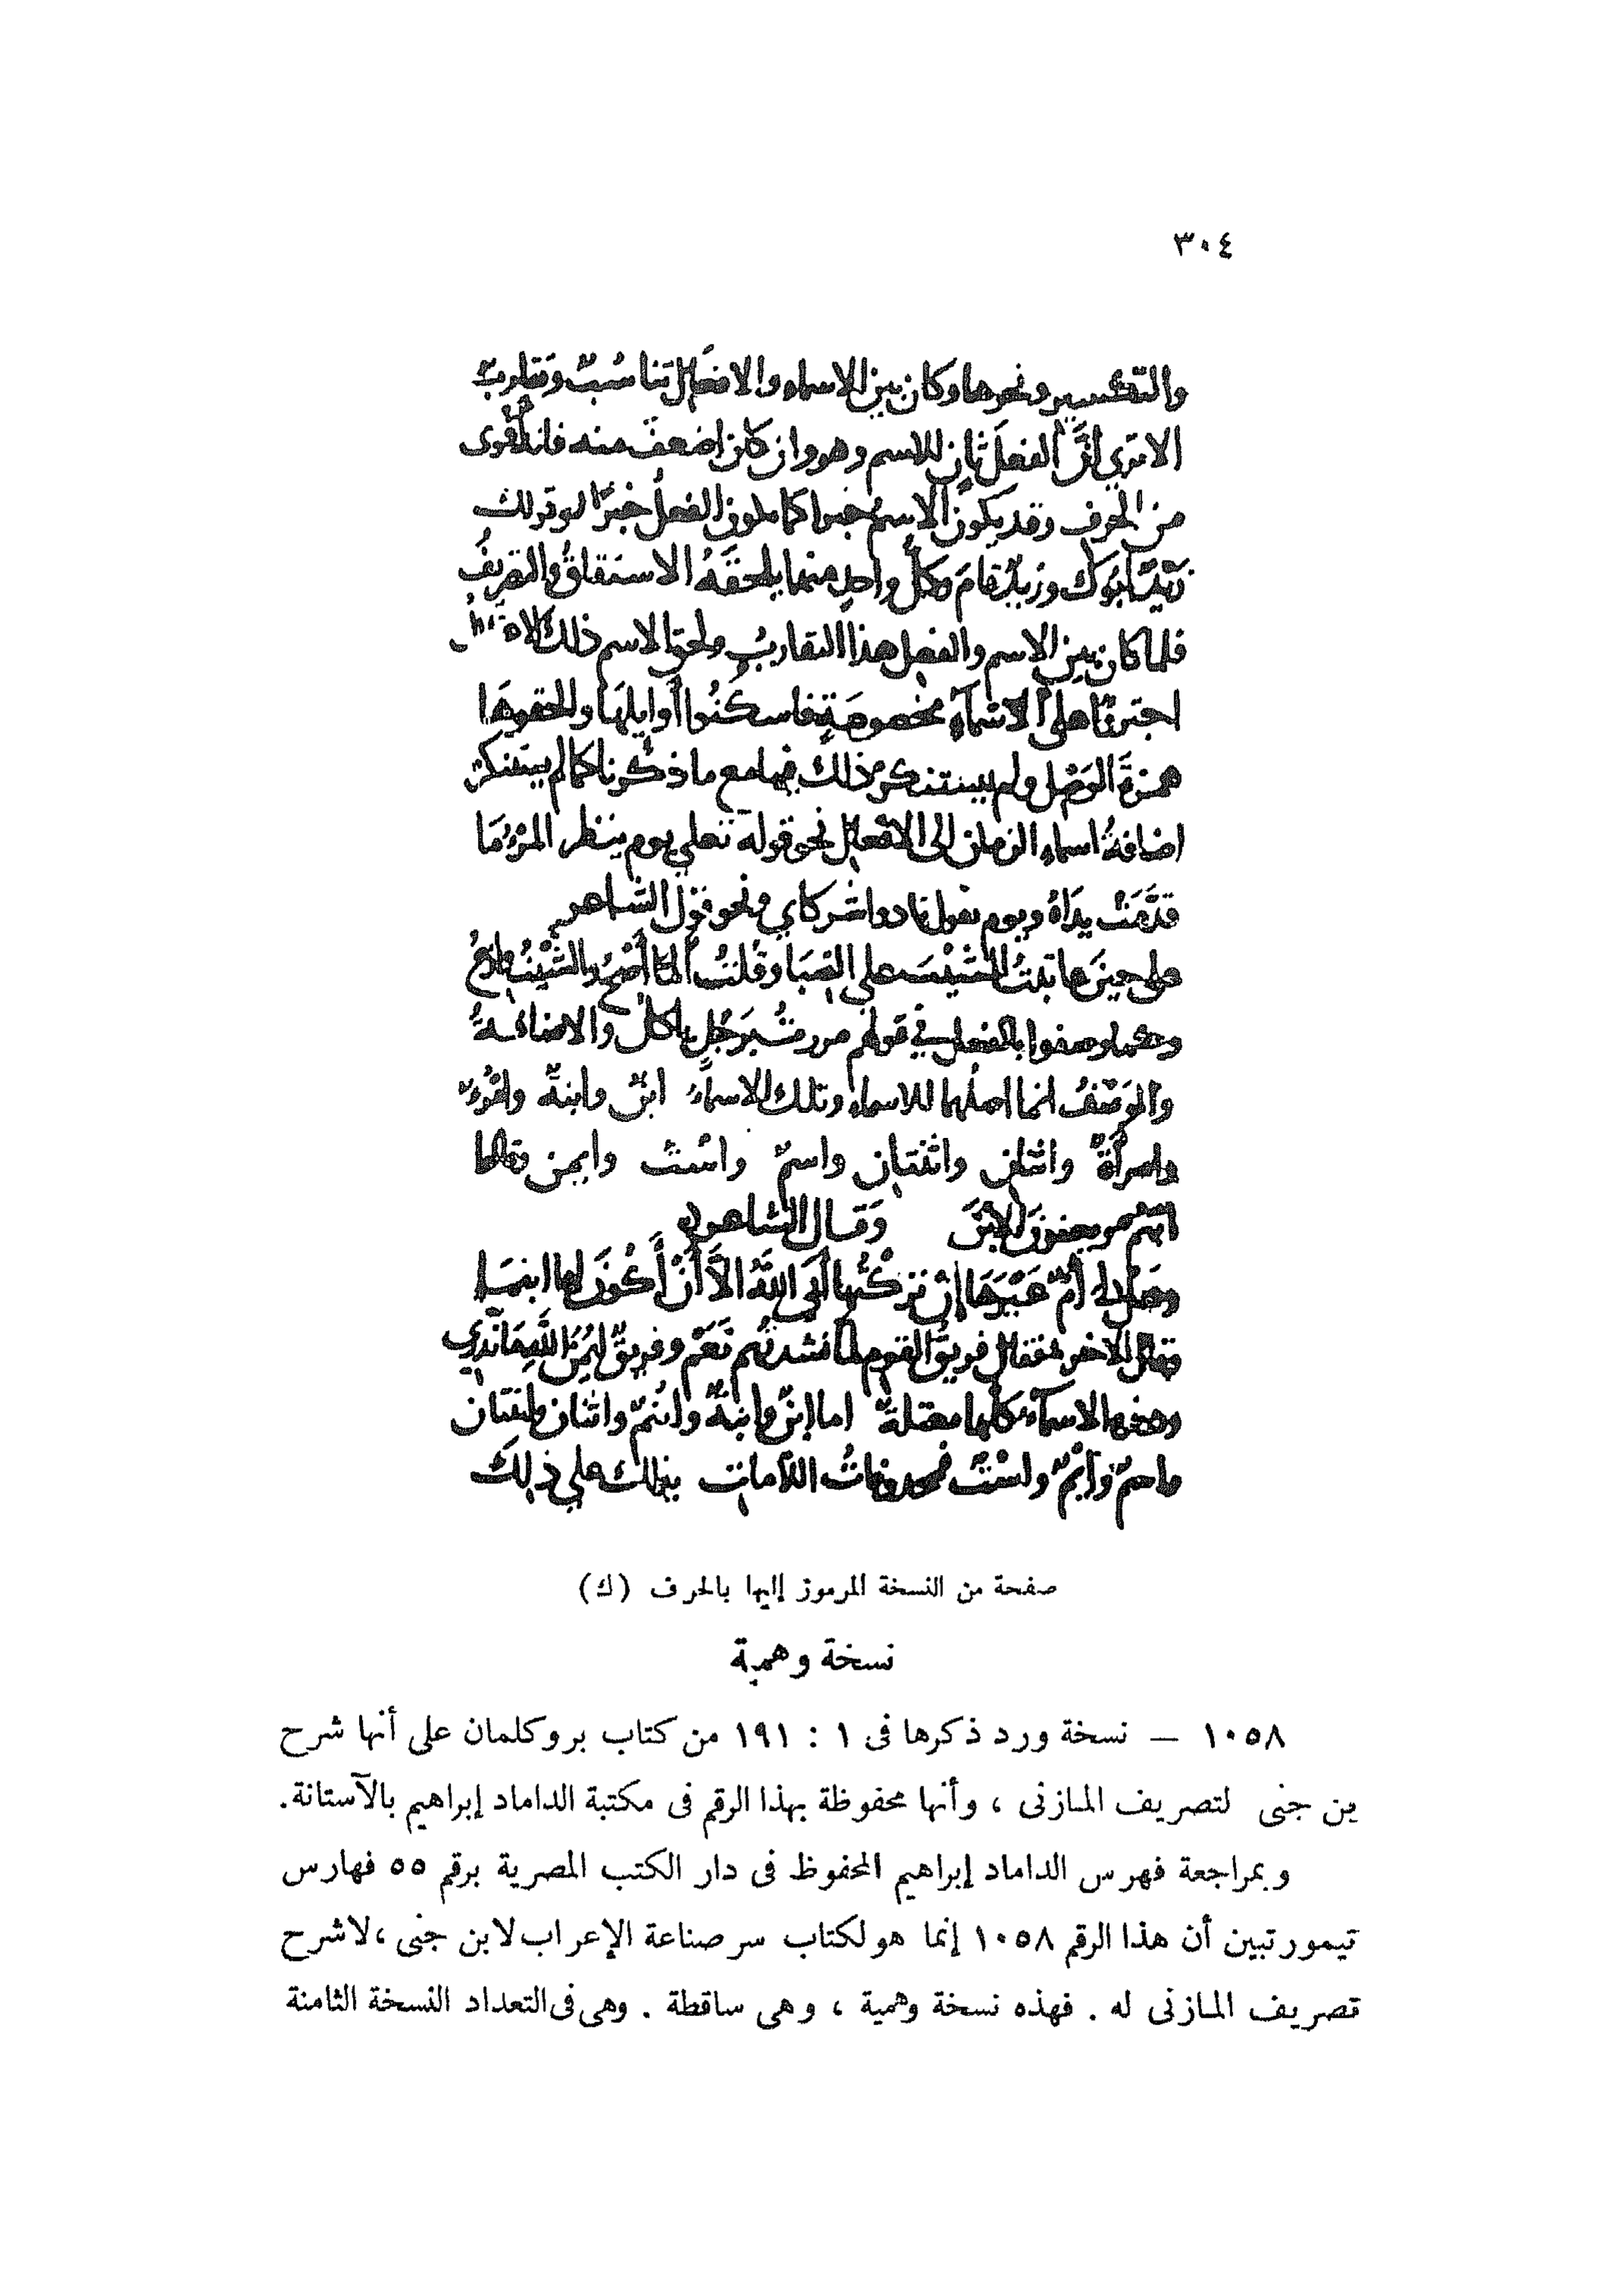 ٣٠٤
والتكسير ونحوها وكان بين الاسماء والافعال تناسُبٌ وتقاربٌ
الا ترى انَّ الفعلَ ثانٍ للاسم وهو وان كان اضعفَ منه فانه اقوى
من الحرف وقد يكون الاسمُ خبرا كما يكون الفعلُ خبرًا لو قولك
زيدٌ ابوك وزيدٌ قامَ وكلُّ واحدٍ منهما يلحقَهُ الاشتقاقُ والتصريفُ
فلما كان بين الاسم والفعل هذا التقاربُ ولحق الاسم ذلك
اجترئا على الاسْماءِ مخصوصَةٍ فاسكنُوا أوايلها والحقوها
همزةَ الوَصْل ولم يستنكر ذلك فيها مع ما ذكرنا كما لم يستنكر
اضافةُ اسماءِ الزمان الى الافعال نحو قوله تعلى يوم ينظر المرْءُ مَا
قدَّمَتْ يَدَاهُ ويوم نقول نادوا شركاي ونحو قول الشاعر
على حينَ عاتبتُ المشيبَ على الصِّبَا وقُلتُ ألمّا أصْحُ والشَّيْبُ وازعُ
وكما وصفوا بالفعل في قولهم مررت برَجُلٍ ياكل والاضافةُ
والوَصْفُ انما اصلهما للاسماءِ وتلك الاسماءُ ابنٌ وابنةٌ وامْرُءٌ
وامرأةٌ واثنان واثنتان واسمٌ واسْتٌ وايمن وقالوا
ابنُمٌ يريدون الابْنَ وَقال الشاعر
وهَلْ لي أُمٌّ غَيْرُهَا إنْ تركْتُها أبَى اللهُ الاَّ أنْ أكُونَ لها ابنَما
وقال الاخر فقال فريقُ القوم لما نشدتُهم نَعَمْ وفريقٌ لَيْمُنُ اللهِ مانَدْري
وهذه الاسمآء كلها معتلةٌ اما ابنٌ وابنةٌ وابنُمٌ واثنان واثنتان
واسمٌ وابْنُمٌ واسْتٌ فمحذوفاتُ اللآمات يدلك على ذلكَ
صفحة من النسخة المرموز إليها بالحرف (ك)
نسخة وهمية
١٠٥٨ — نسخة ورد ذكرها فى ١ : ١٩١ من كتاب بروكلمان على أنها شرح
بن جنى لتصريف المازنى ، وأنها محفوظة بهذا الرقم فى مكتبة الداماد إبراهيم بالآستانة.
وبمراجعة فهرس الداماد إبراهيم المحفوظ فى دار الكتب المصرية برقم ٥٥ فهارس
تيمور تبين أن هذا الرقم ١٠٥٨ إنما هو لكتاب سر صناعة الإعراب لابن جنى ، لا شرح
تصريف المازنى له . فهذه نسخة وهمية ، وهى ساقطة . وهى فى التعداد النسخة الثامنة